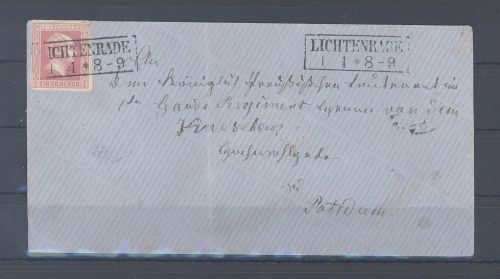 FREIMARKE
LICHTENRADE
1 * 8-9
LICHTENRADE
1 1 * 8-9
An
den Königlich Preußischen Lieutenant im
1ten Garde Regiment Herrn von dem
Knesebeck
Hochwohlgeb.
zu
Potsdam